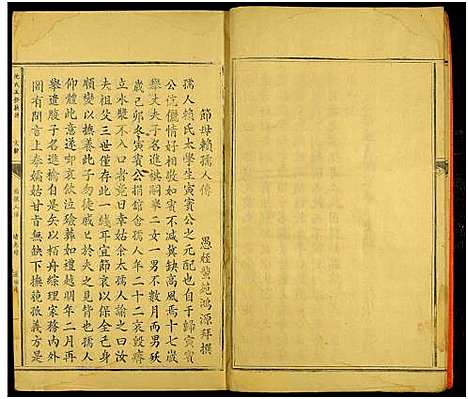 節母賴孺人傳
愚姪黌苑鴻源拜撰
孺人賴氏太學生寅賓公之元配也于歸寅賓
公伉儷情好相敬如賓不減冀缺高風焉十七歲
舉丈夫子名進棋嗣舉二女一男不數月而男殀
歲己卯冬寅賓公捐館舍孺人年二十二哀毀瘠
立水漿不入口者
姑余太孺人諭之曰汝
夫祖父三世僅存此一綫耳宜節哀以保全己身
順變以撫養此子勿徒戚戚於夫之見背也孺人
仰體此意遂啣哀飲泣殮葬如禮越明年二月再
舉遺腹子名進榆自是矢以栢舟綜理家務內外
罔有閒言上奉孀姑甘旨無缺下撫藐孤義方是